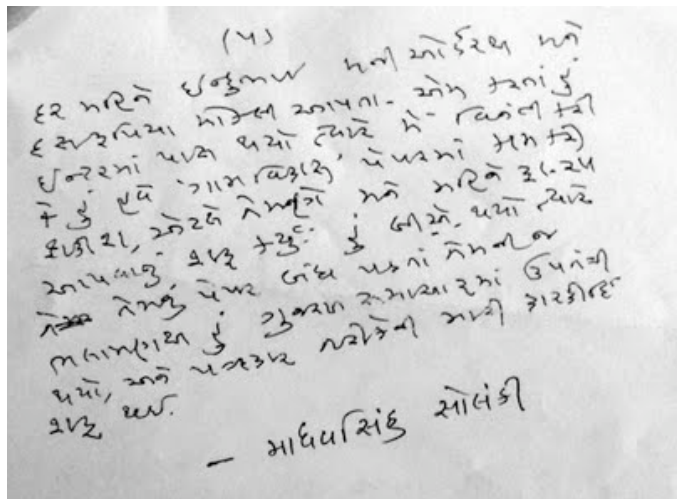 (૫)
દર મહિને ઇન્દુભાઈ મની ઓર્ડરથી મને
દસ રૂપિયા મોકલી આપતા. એમ કરતાં હું
ઇન્ટરમાં પાસ થયો ત્યારે મેં વિનંતી કરી
કે હું હવે 'ગામ વિકાસ' પેપરમાં કામ કરી
શકીશ, એટલે તેમણે મને મહિને રૂા. ૨૫
આપવાનું શરૂ કર્યું. હું બી.એ. થયો ત્યારે
તેમનું પેપર બંધ પડતાં તેમની જ
ભલામણથી હું ગુજરાત સમાચારમાં ઉપતંત્રી
થયો, અને પત્રકાર તરીકેની મારી કારકીર્દિ
શરૂ થઈ.
– માધવસિંહ સોલંકી